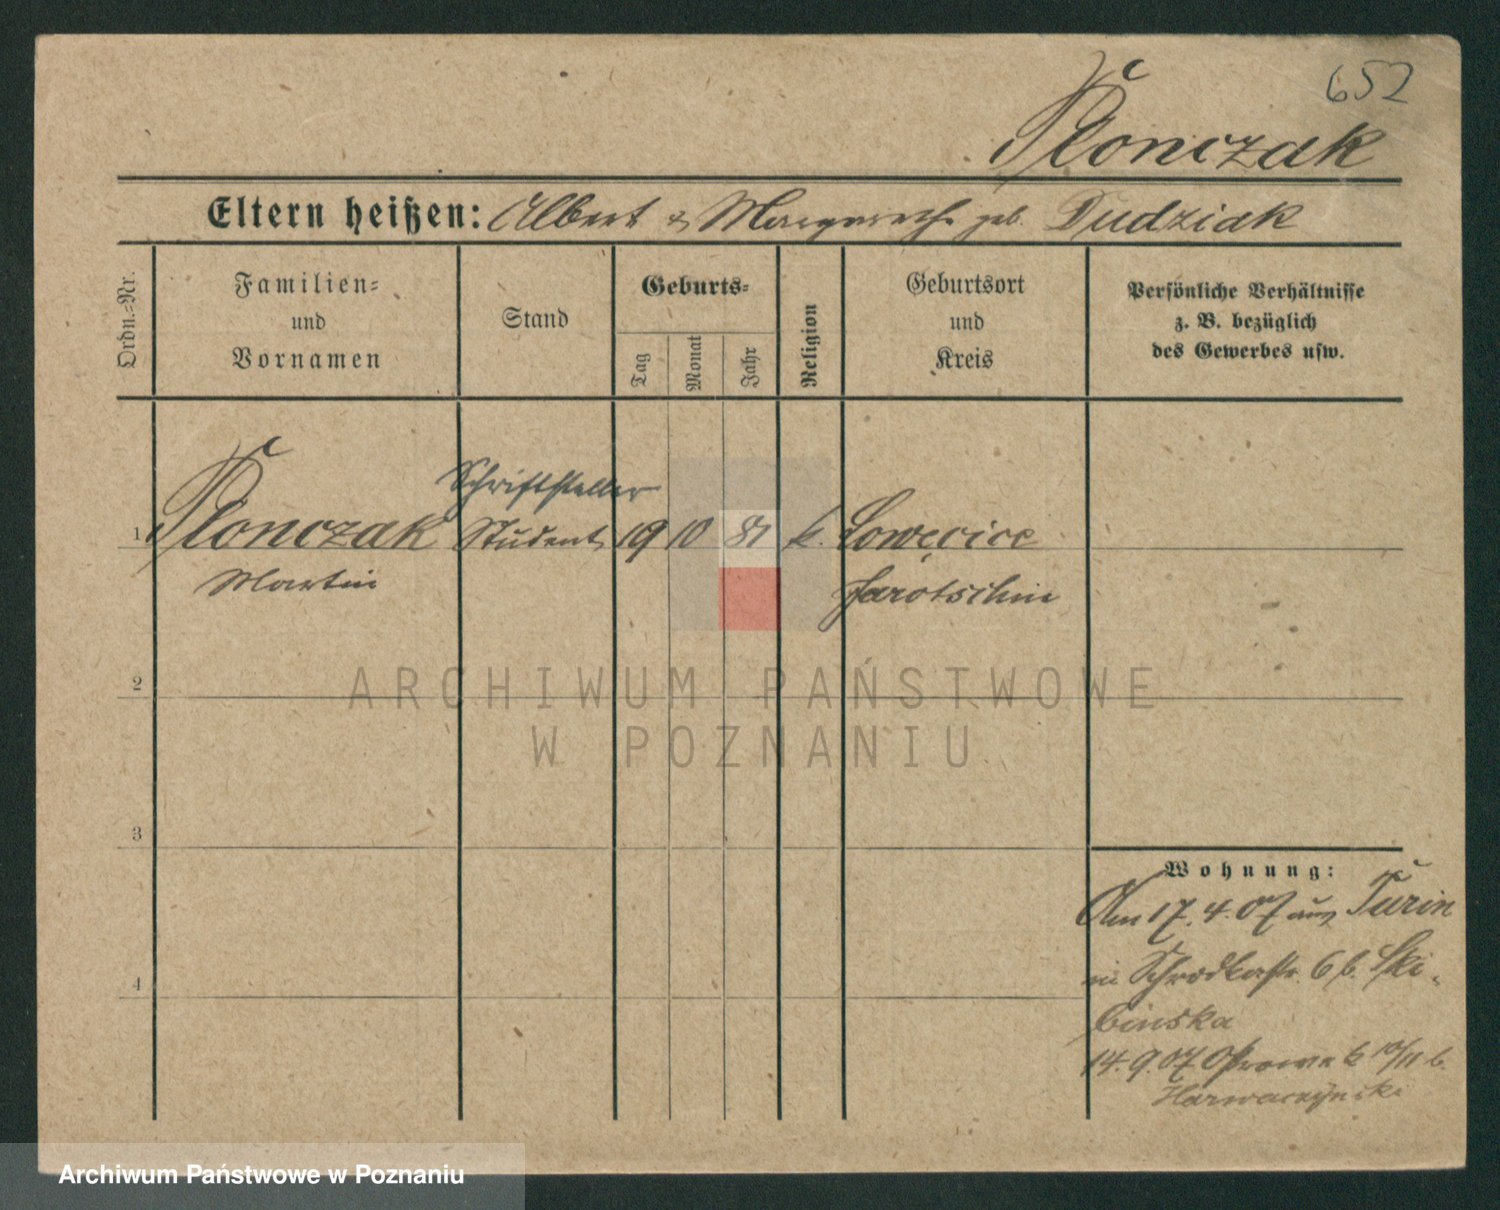 652
Plonczak
Eltern heißen: Albert & Margarethe geb. Dudziak
Ordn.-Nr.
Familien-
und
Vornamen
Stand
Geburts-
Tag
Monat
Jahr
Religion
Geburtsort
und
Kreis
Persönliche Verhältnisse
z. B. bezüglich
des Gewerbes usw.
Schriftsteller
1 Plonczak Student 19 10 81 k. Lowęcice
Martin Jarotschin
2
3
4
Wohnung:
Am 17.4.07 aus Turin
in Schrodkastr. 6 b. Ski-
binska
14.9.07 10/11 b.
ARCHIWUM PAŃSTWOWE
W POZNANIU
Archiwum Państwowe w Poznaniu